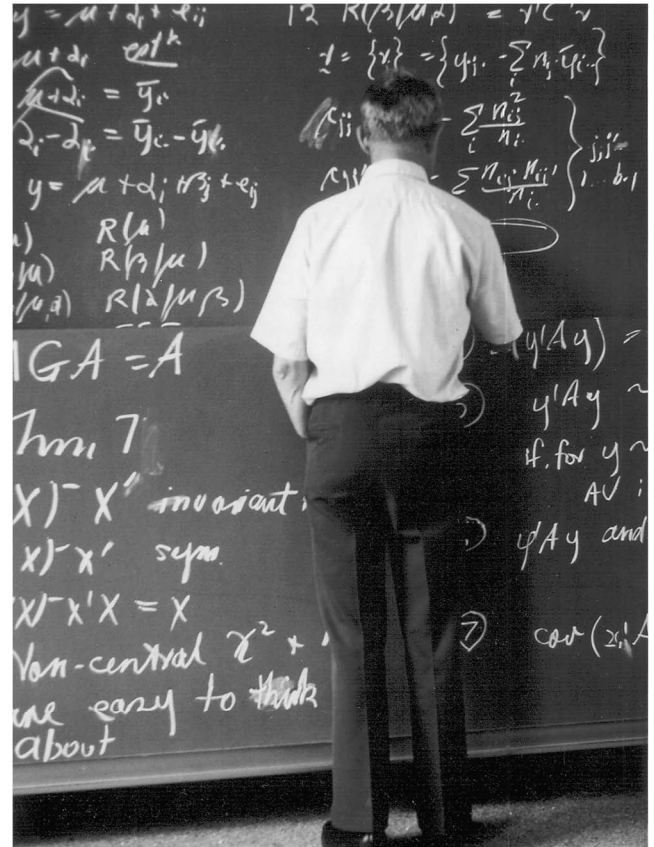 y = μ + α_i + e_ij
μ + α_i est^k
μ + α_i = ȳ_i.
α_i - α_i' = ȳ_i. - ȳ_i'.
y = μ + α_i + β_j + e_ij
R(μ)
R(β|μ)
|μ,α) R(α|μ β)
GA = A
Thm, 7
X)⁻ X' invariant
X)⁻ X' sym.
X)⁻ X'X = X
Non-central χ² +
are easy to think
about
12 R(β|μ,α) = r'C⁻r
r = {r} = {y.j. - Σ_i n_ij ȳ_i..}
c_jj - Σ_i n_ij² / n_i.
- Σ n_ij n_ij' / n_i. } j,j'
1...b-1
y'Ay) =
y'Ay ~
if, for y ~
AV i
y'Ay and
7) cov(x_i'A